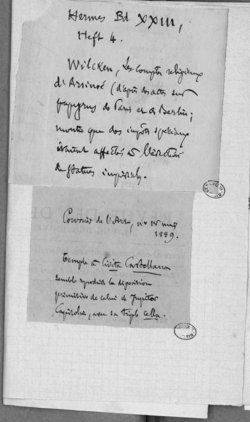 Hermes Bd XXIII,
Heft 4.
Wilcken, Les comptes religieux
d'Arsinoé (d'après des actes sur
papyrus de Paris et de Berlin;
montre que des impôts spéciaux
étaient affectés à
de statues impériales.
Courrier de l'Art, 
1889.
Temple à Civita Castellana
semble reproduire la disposition
primitive de celui de Jupiter
Capitolin, avec sa triple cella.